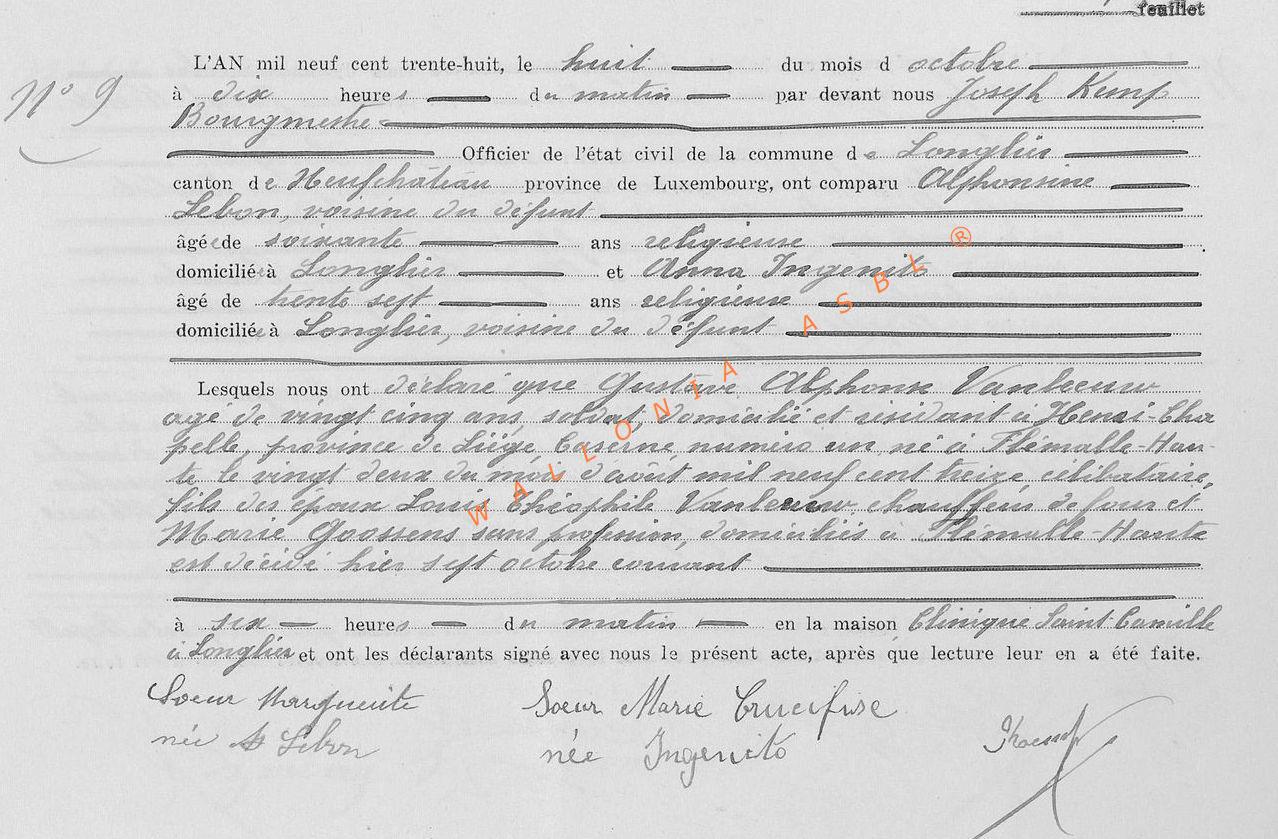 feuillet
N° 9
L'AN mil neuf cent trente-huit, le huit du mois d octobre
à dix heures du matin par devant nous Joseph Kemp
Bourgmestre
Officier de l'état civil de la commune de Longlier
canton de Neufchâteau province de Luxembourg, ont comparu Alphonsine
Lebon, voisine du défunt
âgée de soixante ans religieuse
domiciliée à Longlier et Anna Ingenito
âgé de trente sept ans religieuse
domiciliée à Longlier, voisine du défunt
Lesquels nous ont déclaré que Gustave Alphonse Vanleeuw
agé de vingt cinq ans, soldat, domicilié et résidant à Henri-Cha
pelle, province de Liége, Caserne, numéro un, né à Flémalle-Hau-
te le vingt deux du mois d'août mil neuf cent treize, célibataire,
fils des époux Louis Théophile Vanleeuw, chauffeur de four et
Marie Goossens sans profession, domiciliés à Flémalle-Haute
est décédé hier sept octobre courant
à six heures du matin en la maison Clinique Saint Camille
à Longlier et ont les déclarants signé avec nous le présent acte, après que lecture leur en a été faite.
Soeur Marguerite Soeur Marie Crucifise
née A Lebon née Ingenito
WALLONIA ASBL ®